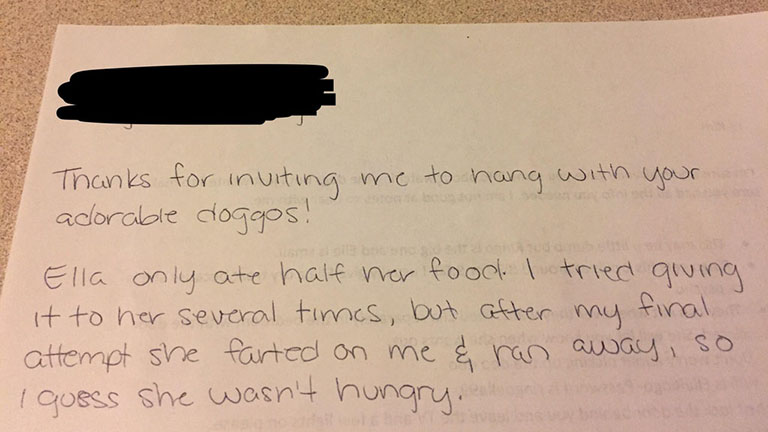 Thanks for inviting me to hang with your
adorable doggos!
Ella only ate half her food. I tried giving
it to her several times, but after my final
attempt she farted on me & ran away, so
I guess she wasn't hungry.